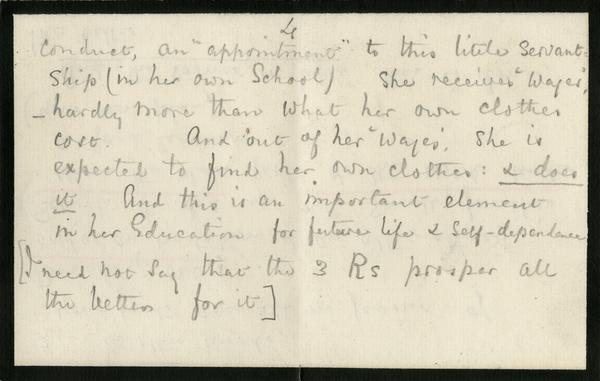 4
conduct, an "appointment" to this little Servant=
ship (in her own School) She receives "Wages",
– hardly more than what her own clothes
cost. And 'out of her "Wages', she is
expected to find her own clothes: & does
it And this is an important element
in her Education for future life & Self-dependence
[I need not say that the 3 Rs prosper all
the better for it.]